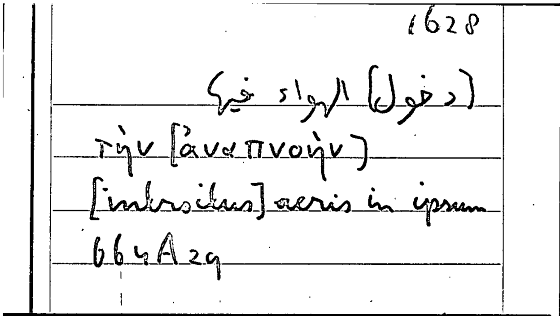 1628
(دخول] الهواء فيها
τὴν [ἀναπνοὴν]
[introitus] aeris in ipsum
664A29